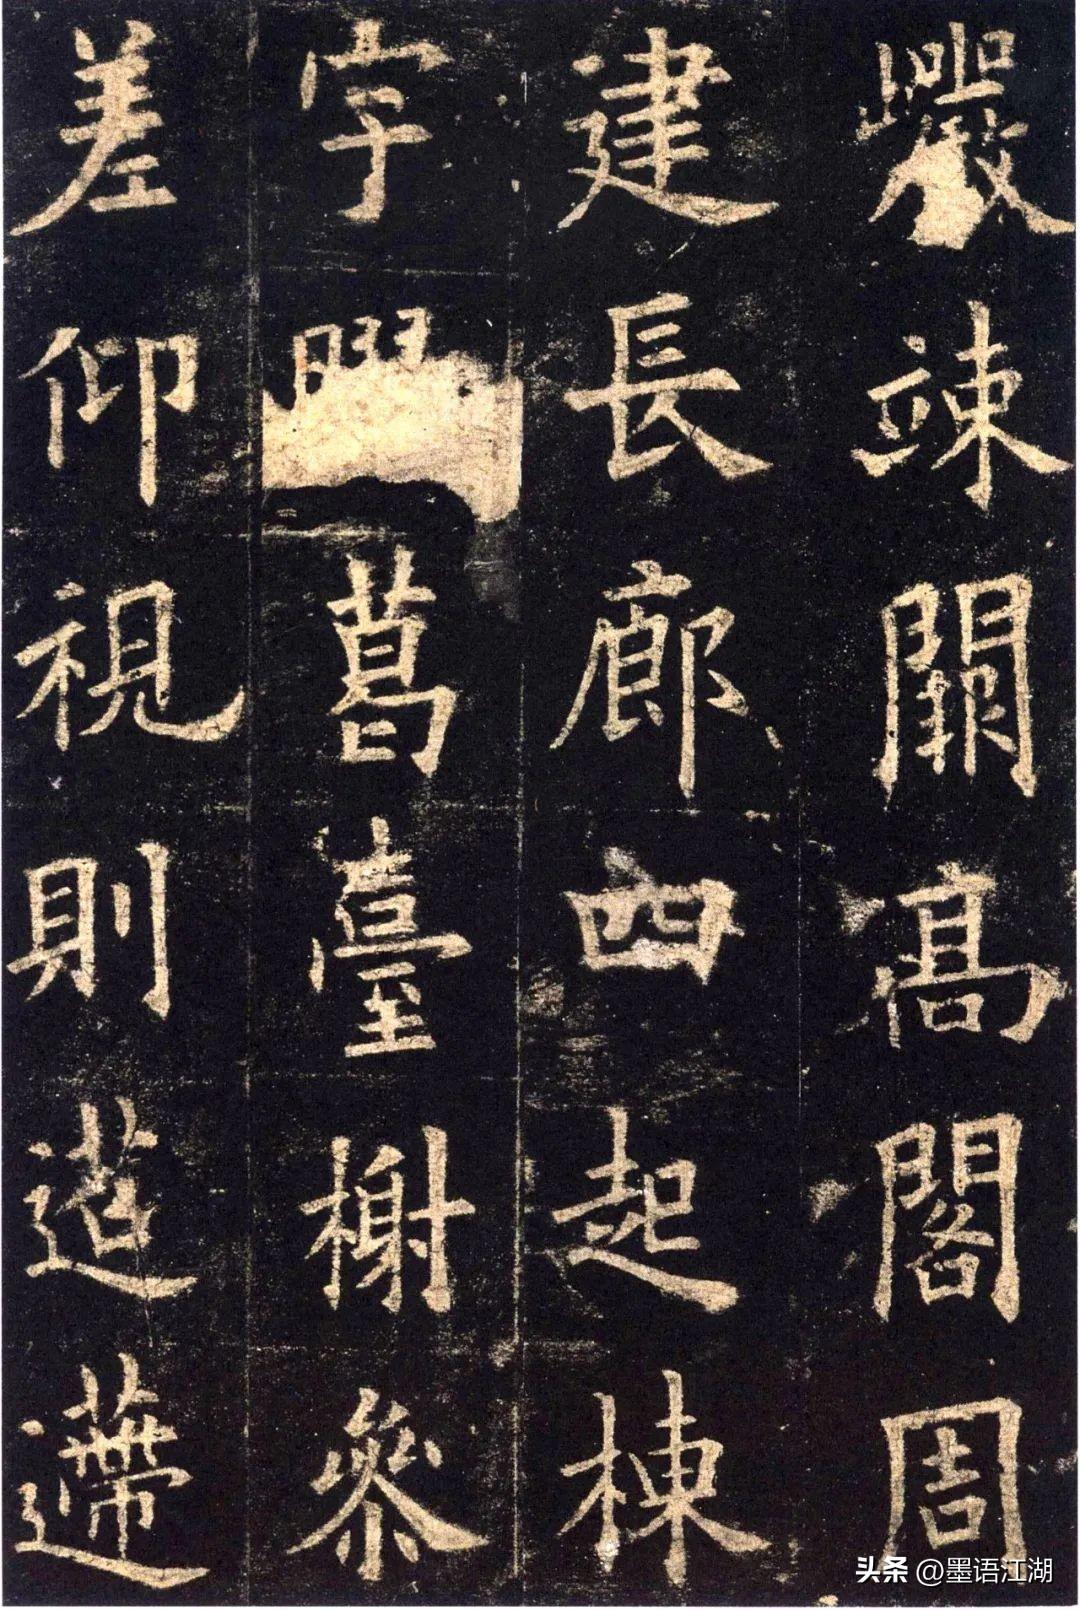 巖竦闕高閣周
建長廊四起棟
宇葛臺榭參
差仰視則迢遰
頭条 @墨语江湖